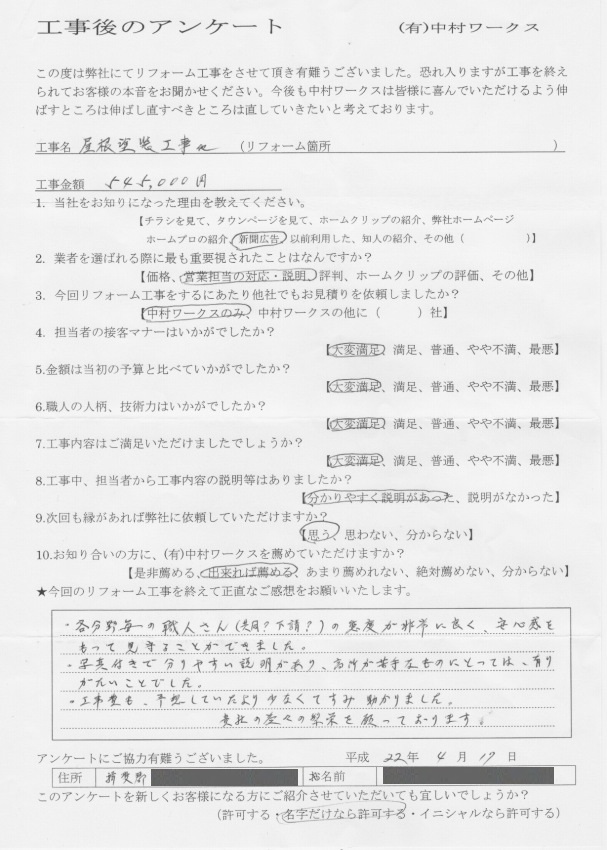 工事後のアンケート (有)中村ワークス
この度は弊社にてリフォーム工事をさせて頂き有難うございました。恐れ入りますが工事を終え
られてお客様の本音をお聞かせください。今後も中村ワークスは皆様に喜んでいただけるよう伸
ばすところは伸ばし直すべきところは直していきたいと考えております。
工事名 屋根塗装工事他 (リフォーム箇所 )
工事金額 545,000円
1. 当社をお知りになった理由を教えてください。
【チラシを見て、タウンページを見て、ホームクリップの紹介、弊社ホームページ
ホームプロの紹介、新聞広告、以前利用した、知人の紹介、その他（ ）】
2. 業者を選ばれる際に最も重要視されたことはなんですか？
【価格、営業担当の対応・説明、評判、ホームクリップの評価、その他】
3. 今回リフォーム工事をするにあたり他社でもお見積りを依頼しましたか？
【中村ワークスのみ、中村ワークスの他に（ ）社】
4. 担当者の接客マナーはいかがでしたか？
【大変満足、満足、普通、やや不満、最悪】
5.金額は当初の予算と比べていかがでしたか？
【大変満足、満足、普通、やや不満、最悪】
6.職人の人柄、技術力はいかがでしたか？
【大変満足、満足、普通、やや不満、最悪】
7.工事内容はご満足いただけましたでしょうか？
【大変満足、満足、普通、やや不満、最悪】
8.工事中、担当者から工事内容の説明等はありましたか？
【分かりやすく説明があった、説明がなかった】
9.次回も縁があれば弊社に依頼していただけますか？
【思う、思わない、分からない】
10.お知り合いの方に、(有)中村ワークスを薦めていただけますか？
【是非薦める、出来れば薦める、あまり薦めれない、絶対薦めない、分からない】
★今回のリフォーム工事を終えて正直なご感想をお願いいたします。
・各分野毎の職人さん(専用?下請?)の態度が非常に良く、安心感を
もって見守ることができました。
・写真付きで分りやすい説明があり、高所が苦手なものにとっては、有り
がたいことでした。
・工事費も、予想していたより少なくてすみ助かりました。
貴社の益々の繁栄を願っております。
アンケートにご協力有難うございました。 平成 22年 4月 17日
住所 揖斐郡 お名前
このアンケートを新しくお客様になる方にご紹介させていただいても宜しいでしょうか？
（許可する・名字だけなら許可する・イニシャルなら許可する）